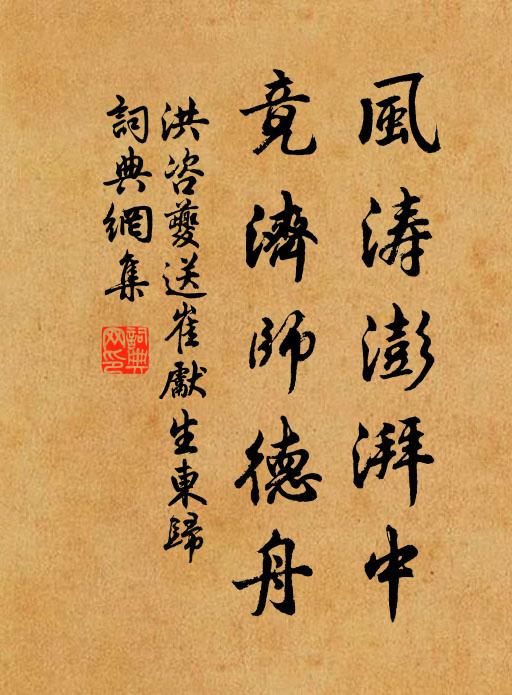 風涛澎湃中
竟濟師德舟
洪咨夔送崔獻生東歸
詞典網集
詞典網印